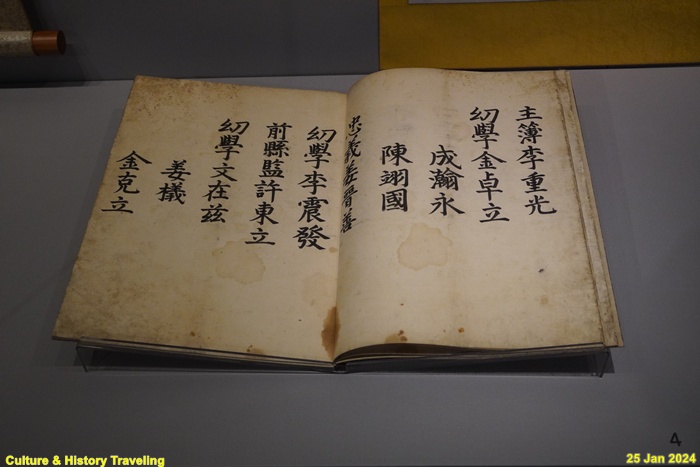 主簿李重光
幼學金卓立
成瀚永
陳翊國
忠義姜晉善
幼學李震發
前縣監許東立
幼學文在玆
姜檥
金克立
4
Culture & History Traveling
25 Jan 2024